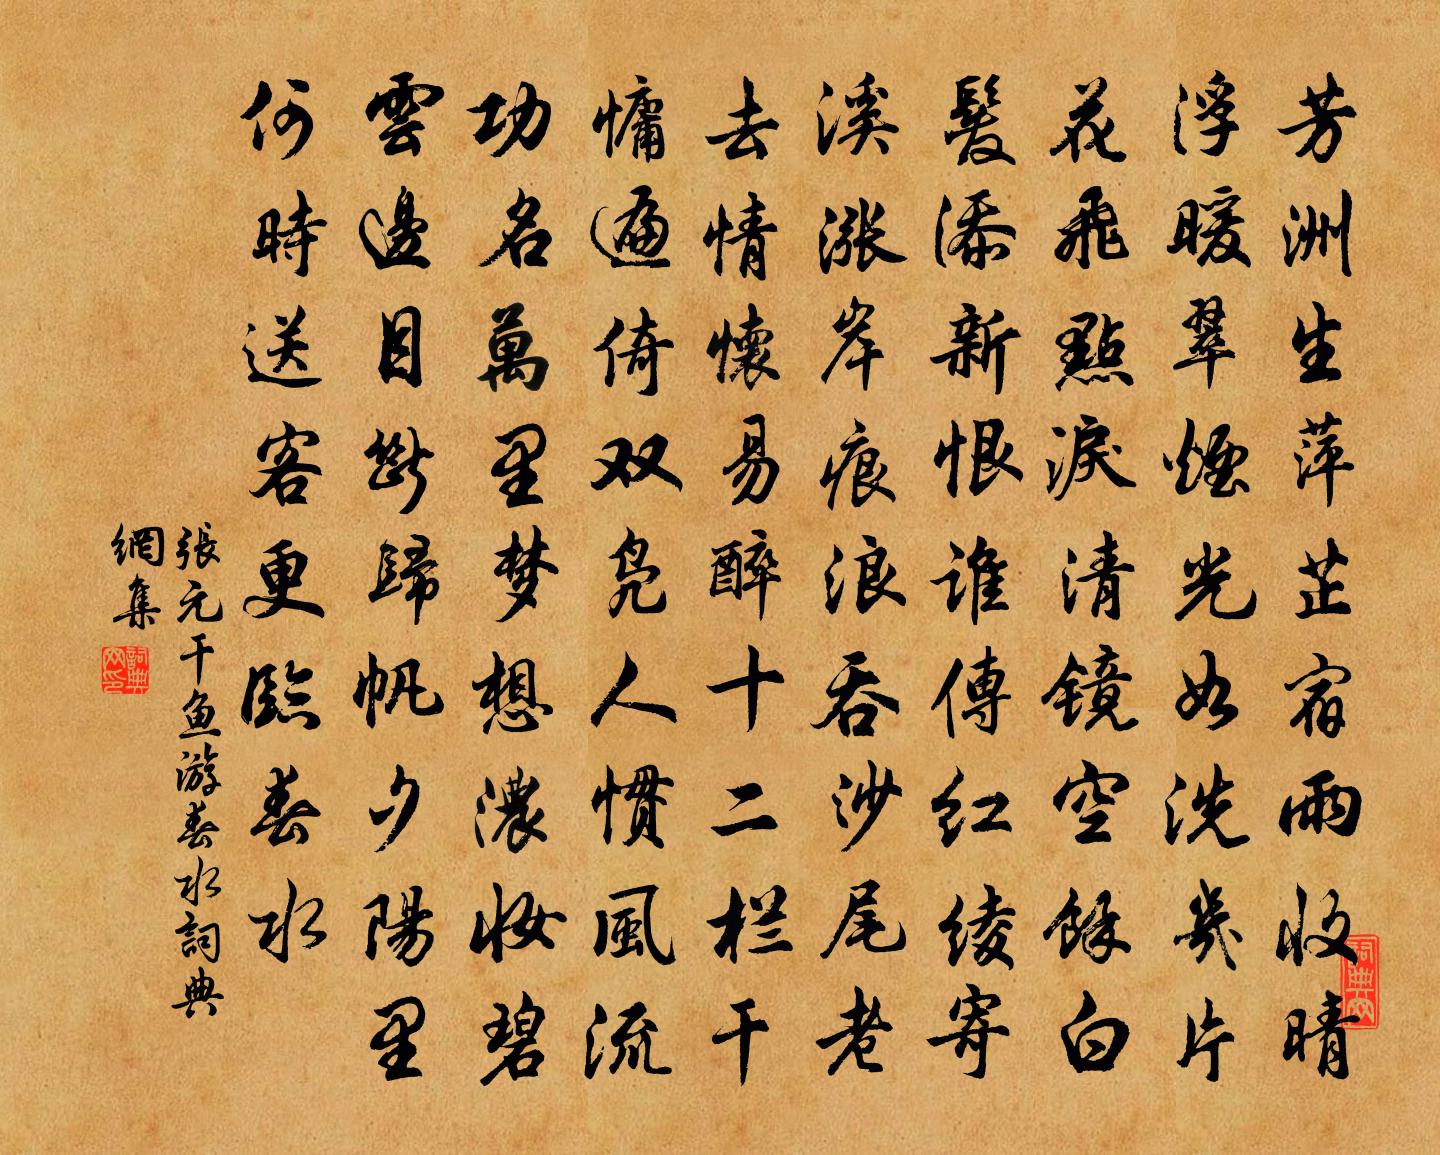 芳洲生萍芷宿雨收晴
浮暖翠煙光如洗幾片
花飛點淚清镜空餘白
髮添新恨誰傳红绫寄
溪漲岸痕浪吞沙尾老
去情懷易醉十二栏干
慵遍倚双凫人慣風流
功名萬里梦想濃妆碧
雲邊目斷歸帆夕陽里
何時送客更臨春水
張元干鱼游春水詞典
網集
詞典
网印
詞典网